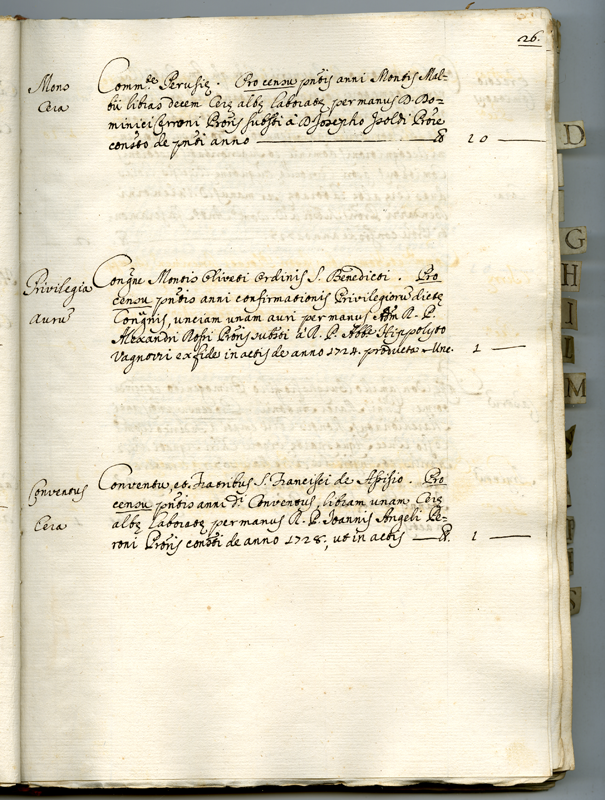 26.
Mons
Cera
Comm.te Perusię. Pro censu pn̄tis anni Montis Mal-
bii libras decem Cerę albę laboratę per manus D. Do-
minici Cerroni Prōris substi à D. Josepho Isoldi Prōre
constō de pn̄ti anno — lb 10 —
Privilegia
Aurū
Congñe Montis Oliveti Ordinis S. Benedicti. Pro
censu pn̄tis anni confirmationis Privilegiorū dictę
Congñis, unciam unam auri per manus R. P.
Alexandri Rossi Prōris substi à R. P. Abbe Hippolyto
Vagnozzi ex fide in actis de anno 1724. producta Unc. 1 —
Conventus
Cera
Conventu, et Fratribus S. Francisci de Assisio. Pro
censu pn̄tis anni d.i Conventus, libram unam Cerę
albę laboratę per manus R. P. Joannis Angeli Pe-
roni Prōris constī de anno 1728, ut in actis — lb. 1 —
D
G
H
I
L
M
S